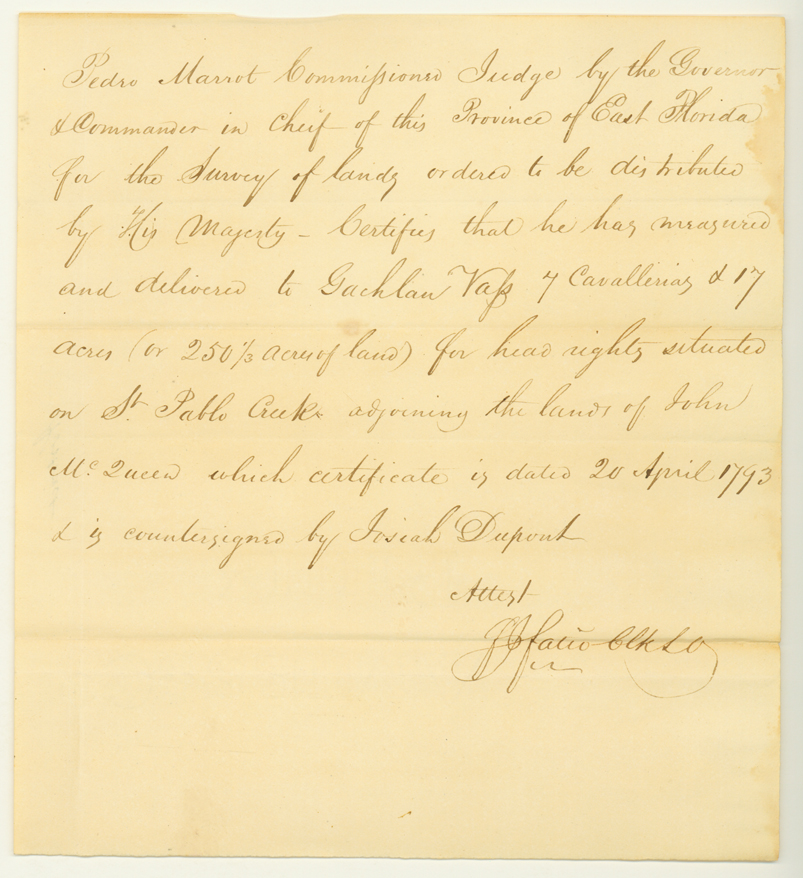 Pedro Marrot Commissioned Judge by the Governor
& Commander in cheif of this Province of East Florida
for the Survey of lands ordered to be distributed
by His Majesty - Certifies that he has measured
and delivered to Gachlan Vass 7 Cavallerias & 17
acres (or 250 1/3 acres of land) for head rights situated
on St. Pablo Creek adjoining the lands of John
McQueen which certificate is dated 20 April 1793
& is countersigned by Josiah Dupont
Attest
F J Fatio Clk L O